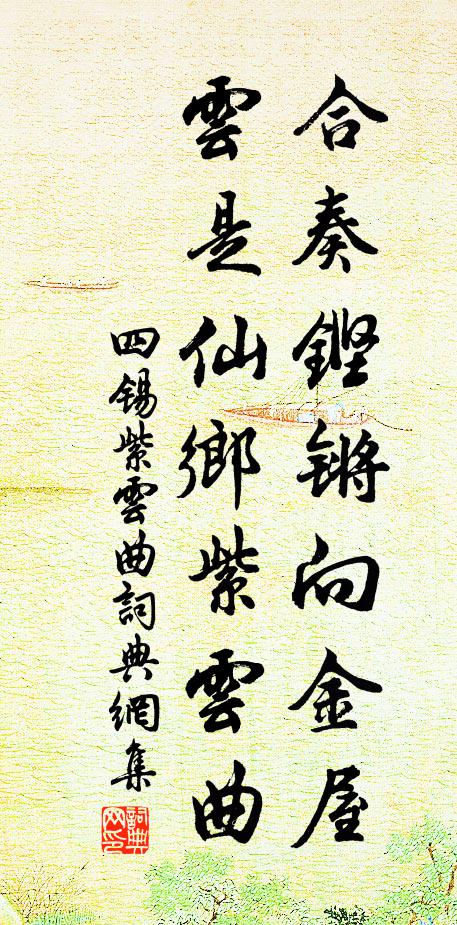 合奏鏗鏘向金屋
雲是仙鄉紫雲曲
四錫紫雲曲詞典網集
詞典
网印